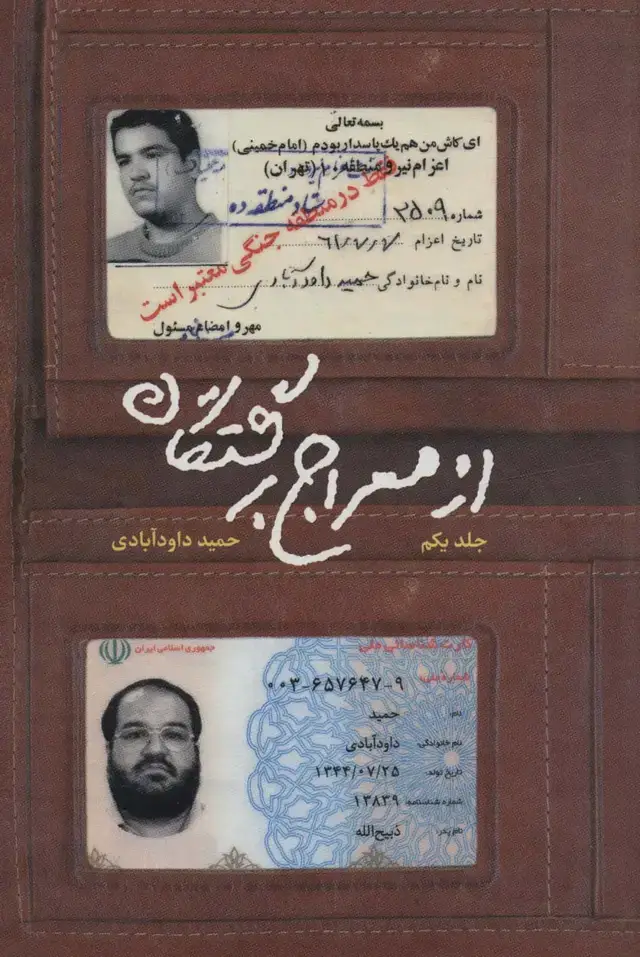 بسمه تعالی
ای کاش من هم یك پاسدار بودم (امام خمینی)
اعزام نیرو منطقه ۱۰ (تهران)
ستاد منطقه ده
فقط در منطقه جنگی معتبر است
شماره ۲۵۰۹
تاریخ اعزام ۶۱/۷/۷
نام و نام خانوادگی حمید داودآبادی
مهر و امضاء مسئول
از معراج برگشتگان
جلد یکم
حمید داودآبادی
جمهوری اسلامی ایران
کارت شناسائی ملی
شماره ملی: ۰۰۳-۶۵۷۶۴۷-۹
نام: حمید
نام خانوادگی: داودآبادی
تاریخ تولد: ۱۳۴۴/۰۷/۲۵
شماره شناسنامه: ۱۳۸۳۹
نام پدر: ذبیح‌الله